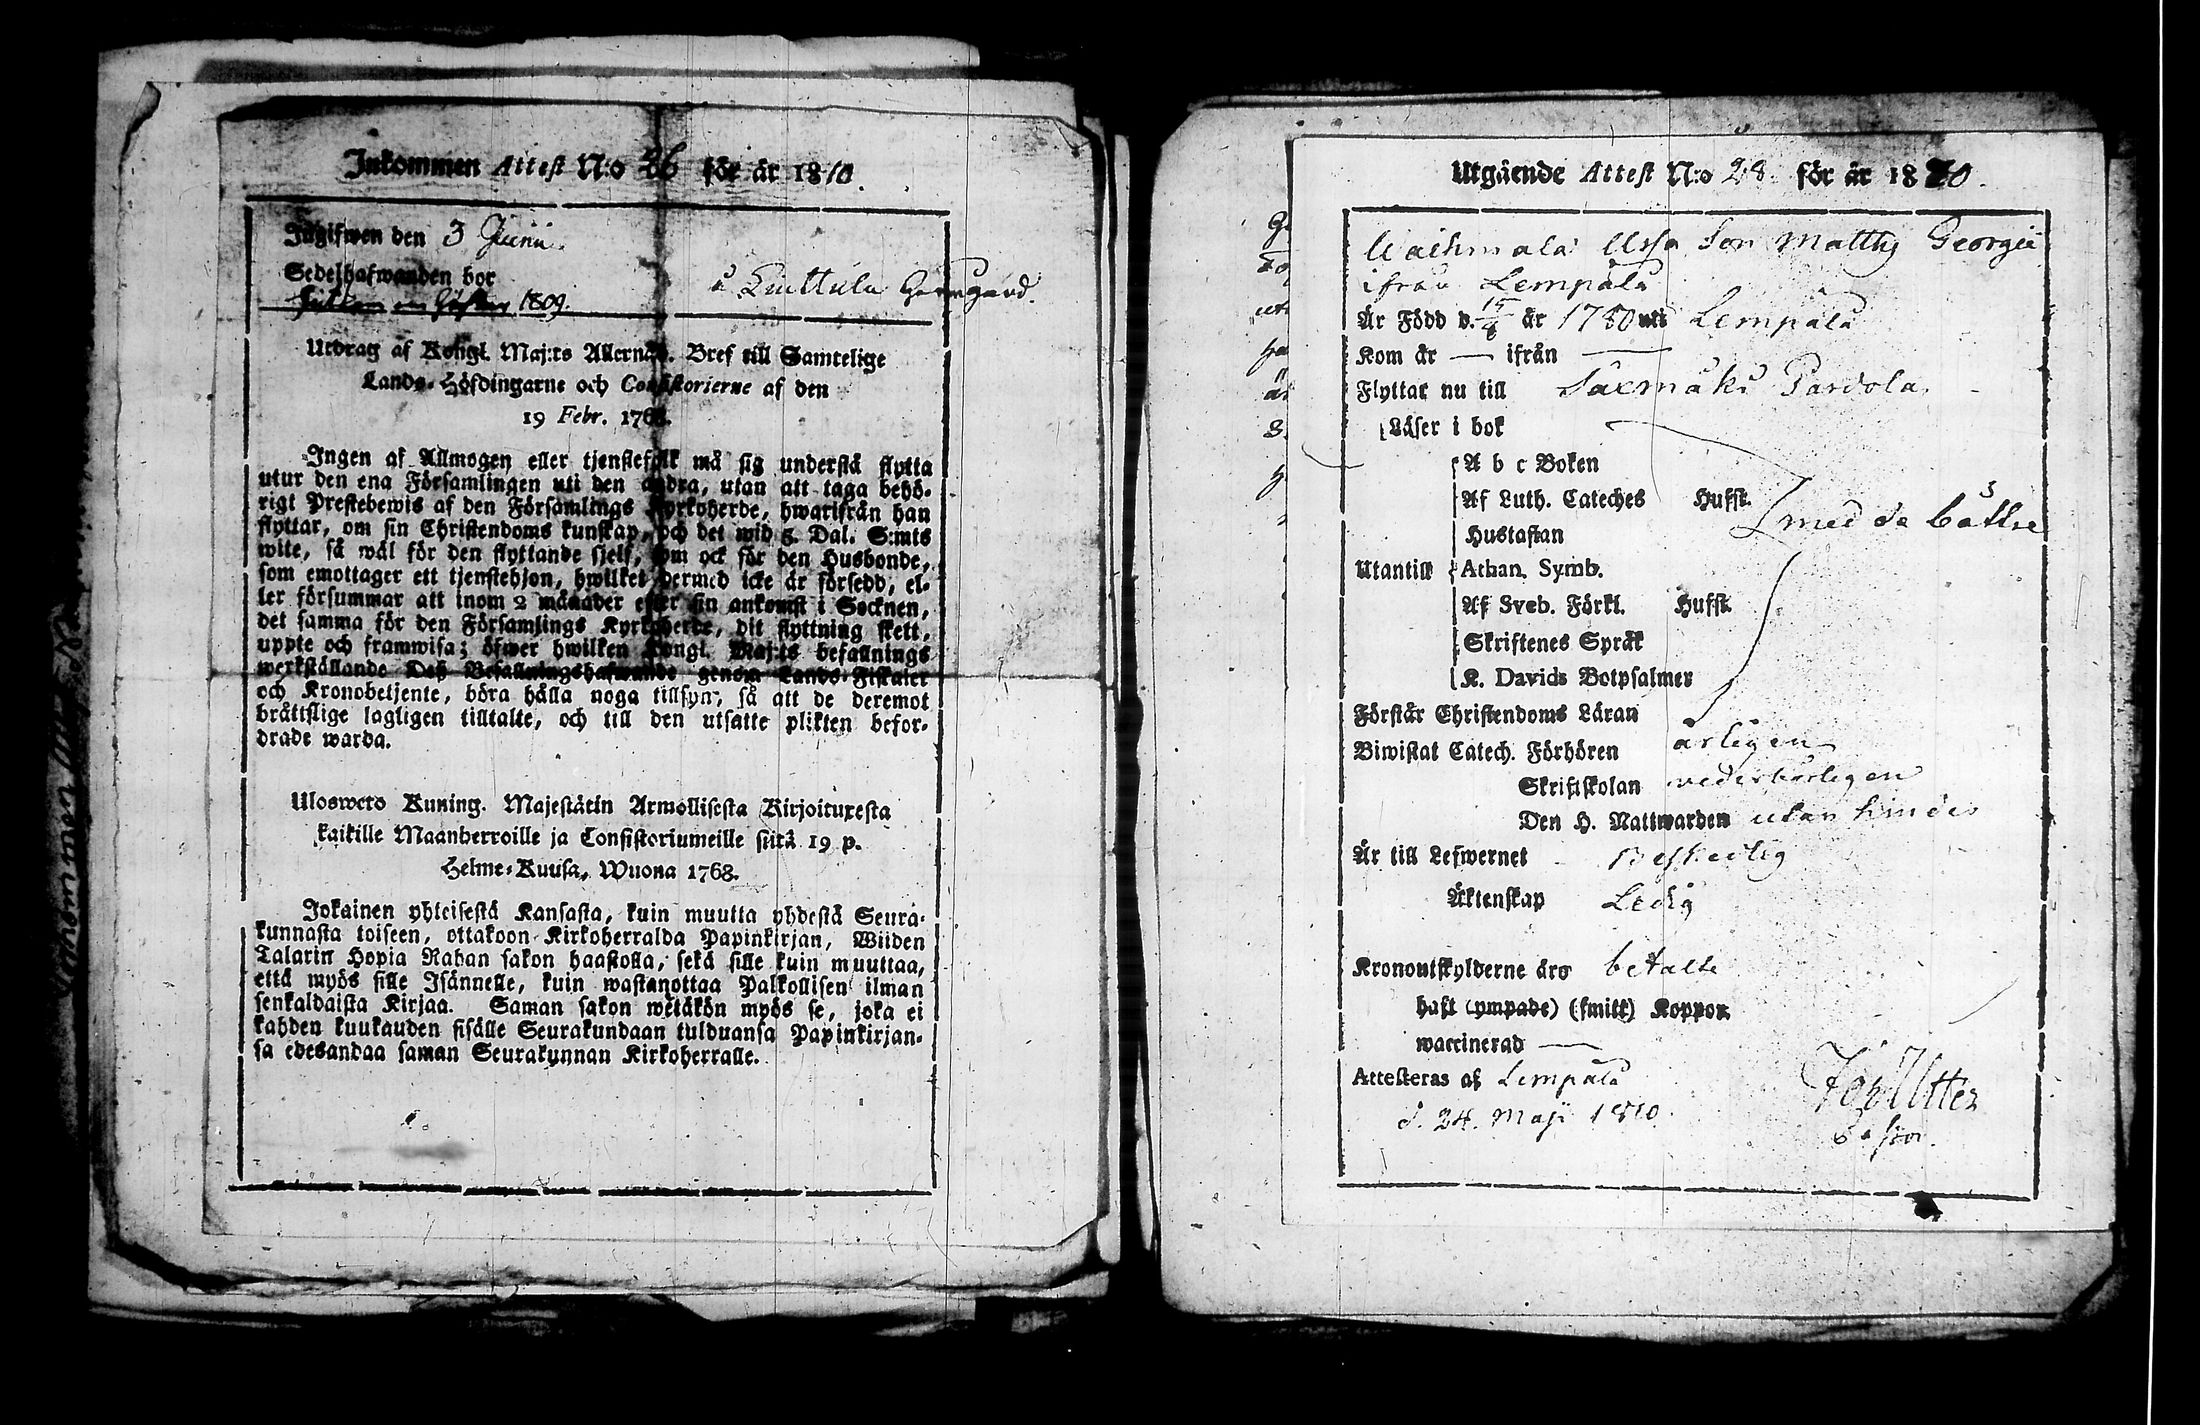 Inkommen Attest N:o 26 för år 1810.
Ingifwen den 3 Junii.
Sedelhafwanden bor
i Kuittula Gammgård.
1809.
Utdrag af Kongl. Maj:ts Allernåd. Bref till Samtelige
Lands-Höfdingarne och Consistorierne af den
19 Febr. 1768.
Ingen af Allmogen eller tjenstefolk må sig understå flytta
utur den ena Församlingen uti den andra, utan att taga behö-
rigt Prestebewis af den Församlings Kyrkoherde, hwarifrån han
flyttar, om sin Christendoms kunskap, och det wid 5. Dal. S:mts
wite, så wäl för den flyttande sjelf, som ock för den Husbonde,
som emottager ett tjenstehjon, hwilket dermed icke är försedd, el-
ler försummar att inom 2 månader efter sin ankomst i Socknen,
det samma för den Församlings Kyrkoherde, dit flyttning skett,
uppte och framwisa; öfwer hwilken Kongl. Maj:ts befallnings
werkställande Deß Befallningshafwande genom Lands-Fiskaler
och Kronobetjente, böra hålla noga tillsyn, så att de deremot
bråttslige lagligen tilltalte, och till den utsatte plikten befor-
drade warda.
Uloswets Kuning. Majestätin Armollisesta Kirjoituxesta
kaikille Maanherroille ja Consistoriumeille siitä 19 p.
Helme-Kuusa, Wuona 1768.
Jokainen yhteisestä Kansasta, kuin muutta yhdestä Seura-
kunnasta toiseen, ottakoon Kirkoherralda Papinkirjan, Wiiden
Talarin Hopia Rahan sakon haastolla, sekä sille kuin muuttaa,
että myös sille Isännelle, kuin wastanottaa Palkollisen ilman
senkaldaista Kirjaa. Saman sakon wetäkön myös se, joka ei
kahden kuukauden sisälle Seurakundaan tulduansa Papinkirjan-
sa edesandaa saman Seurakunnan Kirkoherralle.
Utgående Attest N:o 28. för år 1810.
Uachmala Ussa Son Matths Georgii
ifrån Lempälä
Är Född d. 15/4 år 1780 uti Lempälä
Kom år — ifrån —
Flyttar nu till Säxmäki Pardola
Läser i bok
A b c Boken
Af Luth. Cateches Hufst.
med de bättre
Hustaflan
Utantill Athan. Symb.
Af Sveb. Förkl. Hufst.
Skriftenes Språk
K. Davids Botpsalmer
Förstår Christendoms Läran
Biwistat Catech. Förhören årligen
Skriftskolan wederbörligen
Den H. Nattwarden utan hinder
Är till Lefwernet Beskedlig
Äktenskap Ledig
Kronoutskylderne äro betalte
haft (ympade) (smitt) Koppor
waccinerad —
Attesteras af Lempälä
d. 24. Maji 1810.
Utter
Pastor.